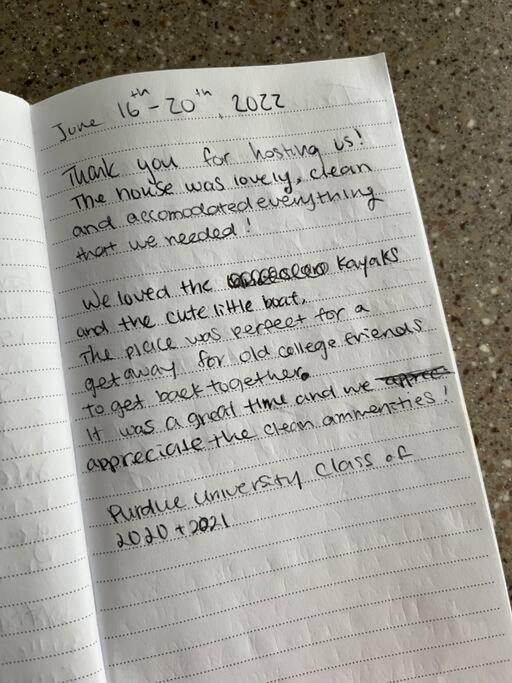 June 16th - 20th, 2022
Thank you for hosting us!
The house was lovely, clean
and accomodated everything
that we needed!
We loved the kayaks
and the cute little boat.
The place was perfect for a
getaway for old college friends
to get back together.
It was a great time and we
appreciate the clean ammenties!
Purdue University Class of
2020 + 2021